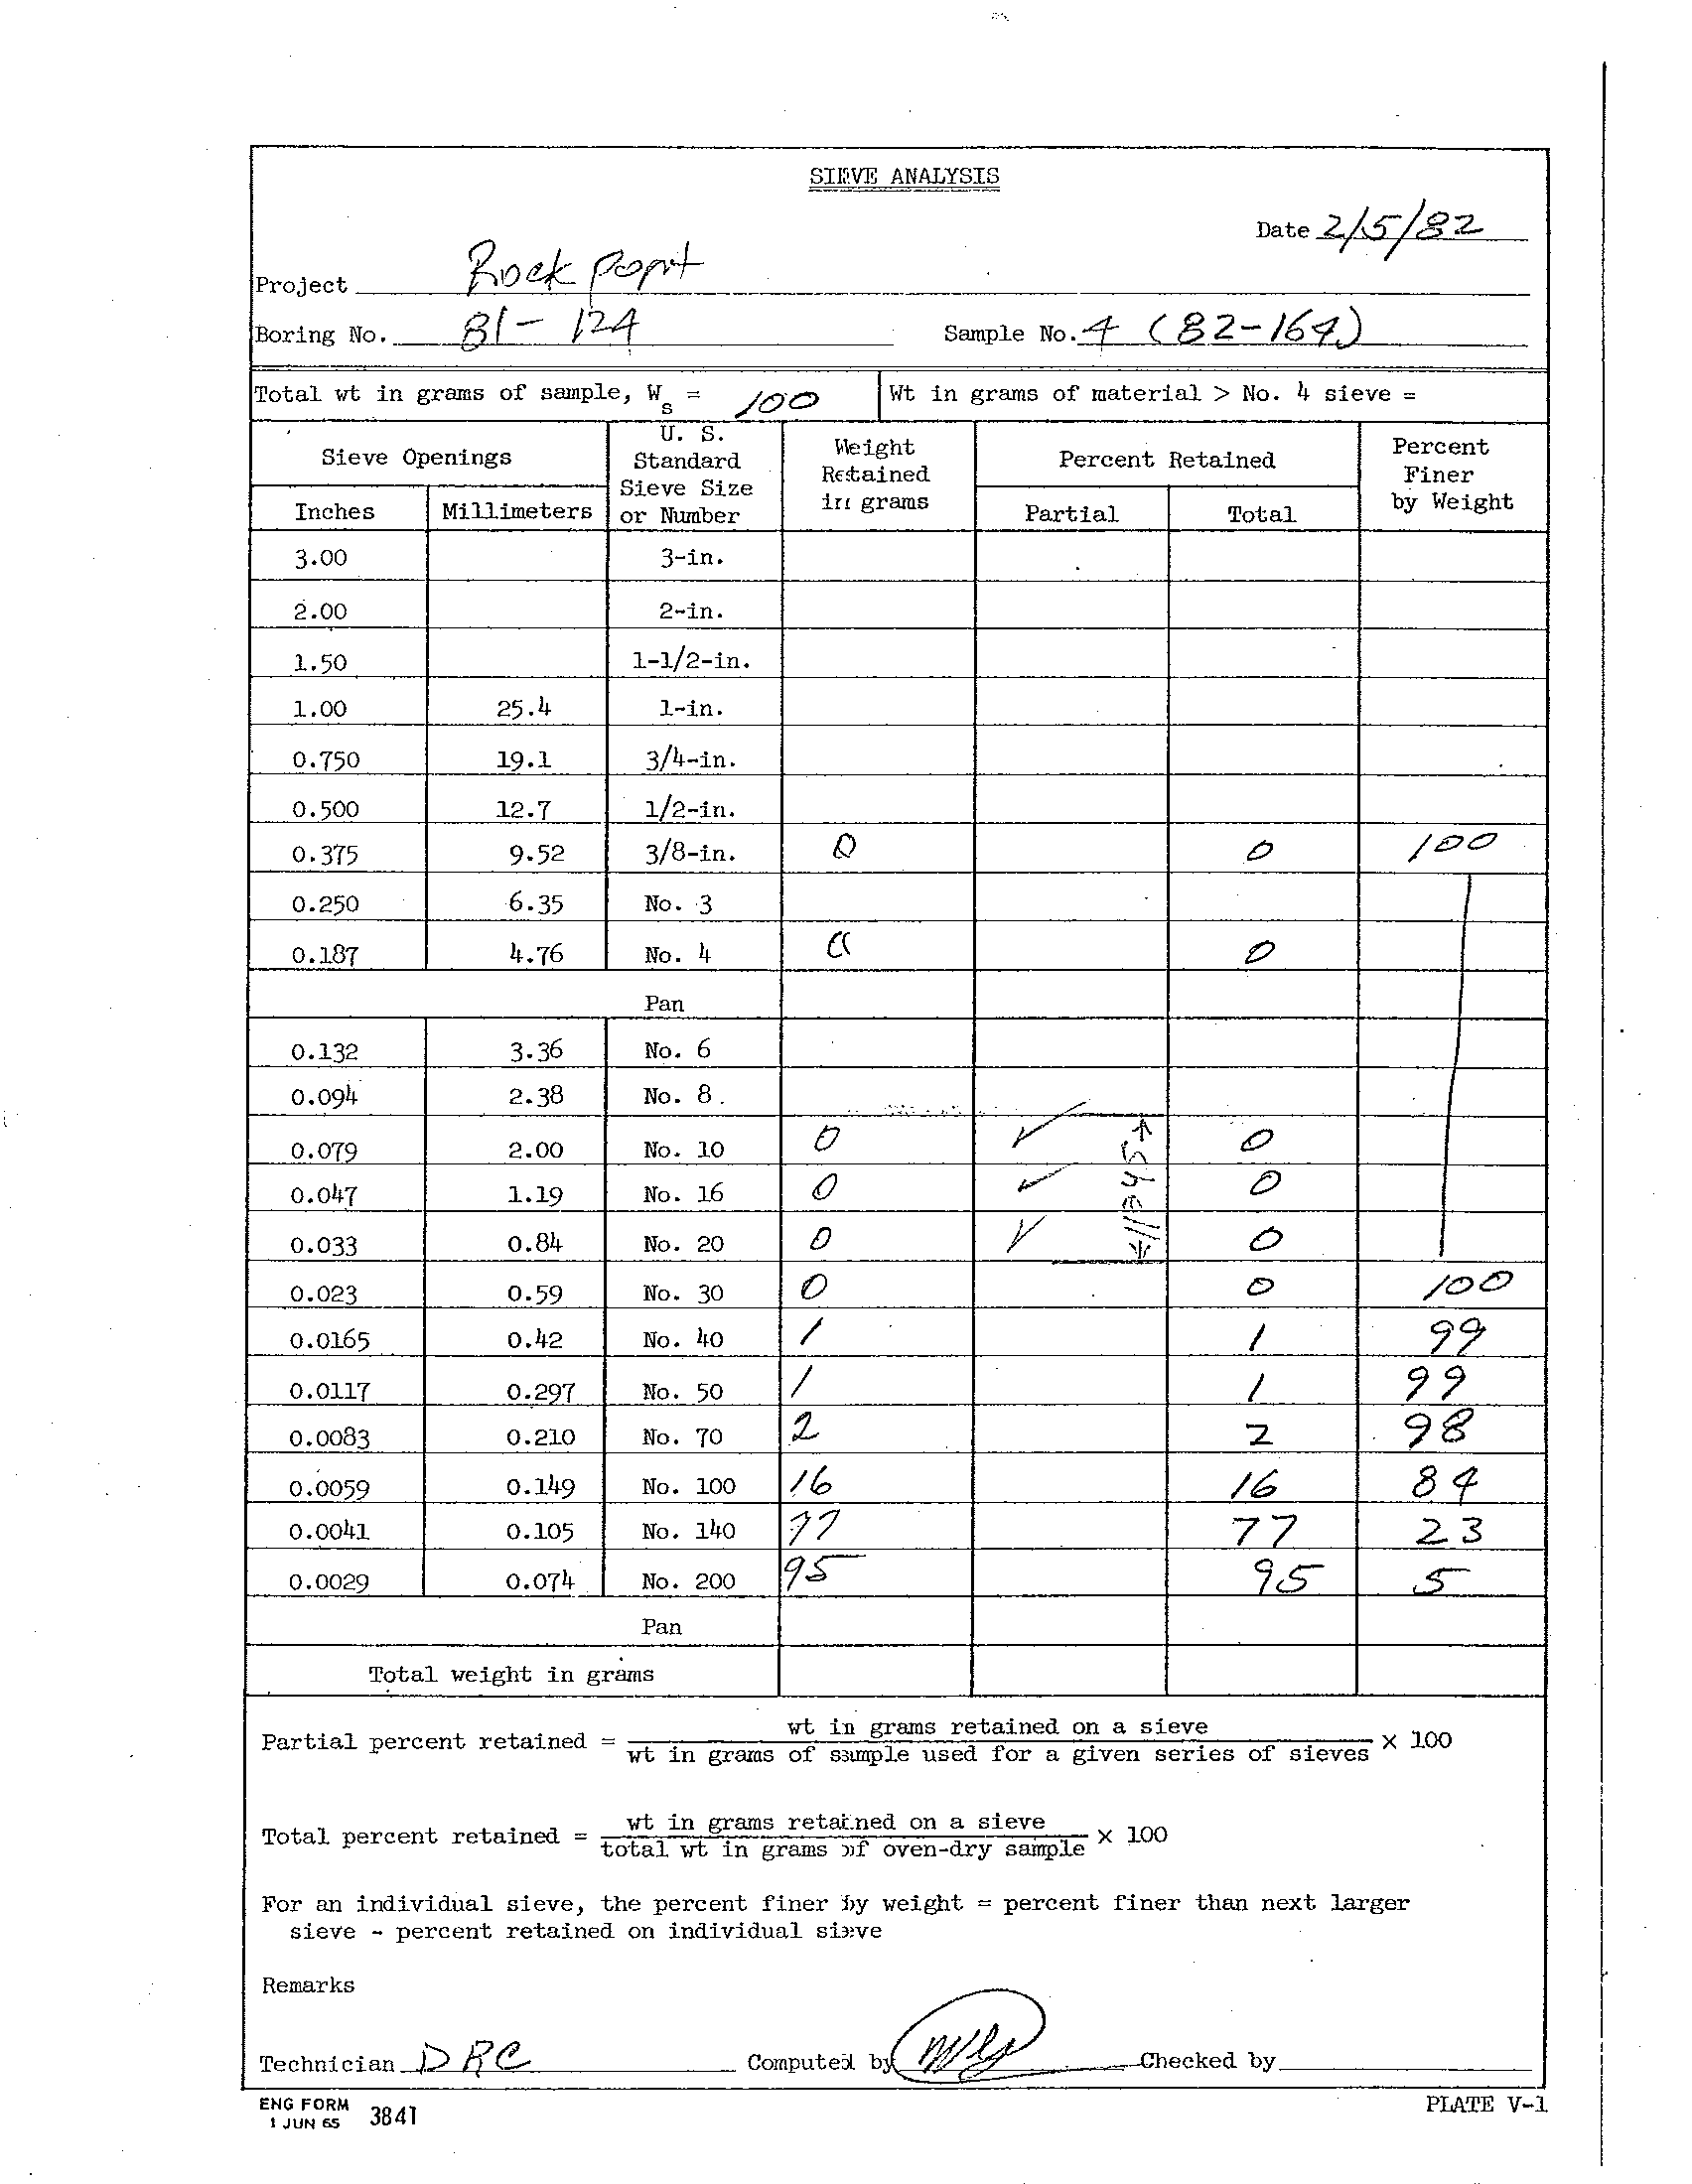 SIEVE ANALYSIS
Date 2/5/82
Project Rock Popit
Boring No. 81-124 Sample No. 4 (82-164)
Total wt in grams of sample, Ws = 100 Wt in grams of material > No. 4 sieve =
Sieve Openings U. S. Standard Sieve Size or Number Weight Retained in grams Percent Retained Percent Finer by Weight
Inches Millimeters Partial Total
3.00 3-in.
2.00 2-in.
1.50 1-1/2-in.
1.00 25.4 1-in.
0.750 19.1 3/4-in.
0.500 12.7 1/2-in.
0.375 9.52 3/8-in. 0 0 100
0.250 6.35 No. 3
0.187 4.76 No. 4 0 0
Pan
0.132 3.36 No. 6
0.094 2.38 No. 8
0.079 2.00 No. 10 0 ✓ 0
0.047 1.19 No. 16 0 ✓ 0
0.033 0.84 No. 20 0 ✓ 0
0.023 0.59 No. 30 0 0 100
0.0165 0.42 No. 40 1 1 99
0.0117 0.297 No. 50 1 1 99
0.0083 0.210 No. 70 2 2 98
0.0059 0.149 No. 100 16 16 84
0.0041 0.105 No. 140 77 77 23
0.0029 0.074 No. 200 95 95 5
Pan
Total weight in grams
Partial percent retained = wt in grams retained on a sieve / wt in grams of sample used for a given series of sieves × 100
Total percent retained = wt in grams retained on a sieve / total wt in grams of oven-dry sample × 100
For an individual sieve, the percent finer by weight = percent finer than next larger
sieve - percent retained on individual sieve
Remarks
Technician DRC Computed by Checked by
ENG FORM 3841 PLATE V-1
1 JUN 65